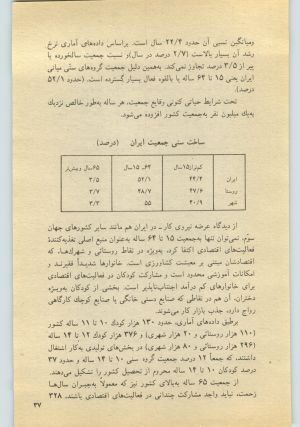 ومیانگین نسبی آن حدود ۲۲/۴ سال است. براساس داده‌های آماری نرخ
رشد آن بسیار بالاست (۲/۷ درصد در سال) و نسبت جمعیت سالخورده یا
پیر از ۳/۵ درصد تجاوز نمی‌کند. به‌همین دلیل جمعیت گروه‌های سنی میانی
ایران یعنی ۱۵ تا ۶۴ ساله یا بالقوه فعال بسیار گسترده است. (حدود ۵۲/۱
درصد).
تحت شرایط حیاتی کنونی وقایع جمعیت، هر ساله به‌طور خالص نزدیک
به‌یک میلیون نفر به‌جمعیت کشور افزوده می‌شود.
ساخت سنی جمعیت ایران (درصد)
کمتر از ۱۵ سال ۶۴ـ۱۵ سال ۶۵ سال وبیش‌تر
ایران ۴۴/۴ ۵۲/۱ ۳/۵
روستا ۴۷/۶ ۴۸/۷ ۳/۷
شهر ۴۰/۹ ۵۵ ۳/۳
از دیدگاه عرضه نیروی کار... در ایران هم مانند سایر کشورهای جهان
سوم، نمی‌توان تنها به‌جمعیت ۱۵ تا ۶۴ ساله به‌عنوان منبع اصلی تغذیه‌کنندهٔ
فعالیت‌های اقتصادی اکتفا کرد، به‌ویژه در نقاط روستائی و شهرک‌ها، که
اقتصادشان مبتنی بر معیشت کشاورزی است. خانوارها شدیداً فقیرند و
امکانات آموزشی محدود است و مشارکت کودکان در فعالیت‌های اقتصادی
برای خانوارهای کم درآمد اجتناب‌ناپذیر است. بخشی از کودکان به‌ویژه
دختران، آن هم در نقاطی که صنایع دستی خانگی یا صنایع کوچک کارگاهی
رواج دارد، جذب بازار کار می‌شوند.
برطبق داده‌های آماری، حدود ۱۳۰ هزار کودک ۱۰ تا ۱۱ ساله کشور
(۱۱۰ هزار روستائی و ۲۰ هزار شهری) و ۳۷۶ هزار کودک ۱۲ تا ۱۴ ساله
(۲۹۶ هزار روستائی و ۸۰ هزار شهری) در بخش‌های تولیدی به‌کار اشتغال
داشتند، که جمعاً ۱۲ درصد جمعیت گروه سنی ۱۰ تا ۱۴ ساله و حدود ۳۷
درصد کودکان ۱۰ تا ۱۴ ساله محروم از تحصیل کشور را تشکیل می‌دهند.
از جمعیت ۶۵ ساله به‌بالای کشور نیز که معمولاً به‌جبران سال‌ها
زحمت، نباید واجد مشارکت چندانی در فعالیت‌های اقتصادی باشند، ۳۲۸
۳۷